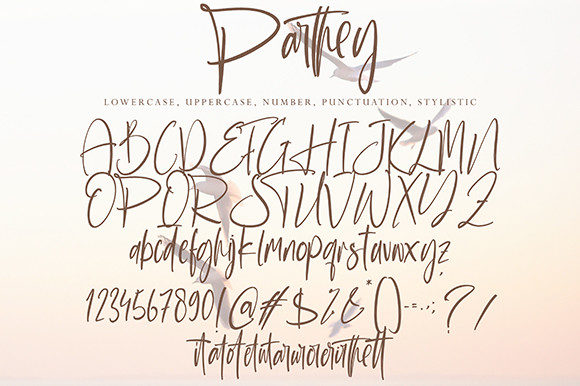 Parthey
LOWERCASE, UPPERCASE, NUMBER, PUNCTUATION, STYLISTIC
ABCDEFGHIJKLMN
OPQRSTUVWXYZ
abcdefghijklmnopqrstuvwxyz
1234567890!@#$%&*()-=.,:;?/